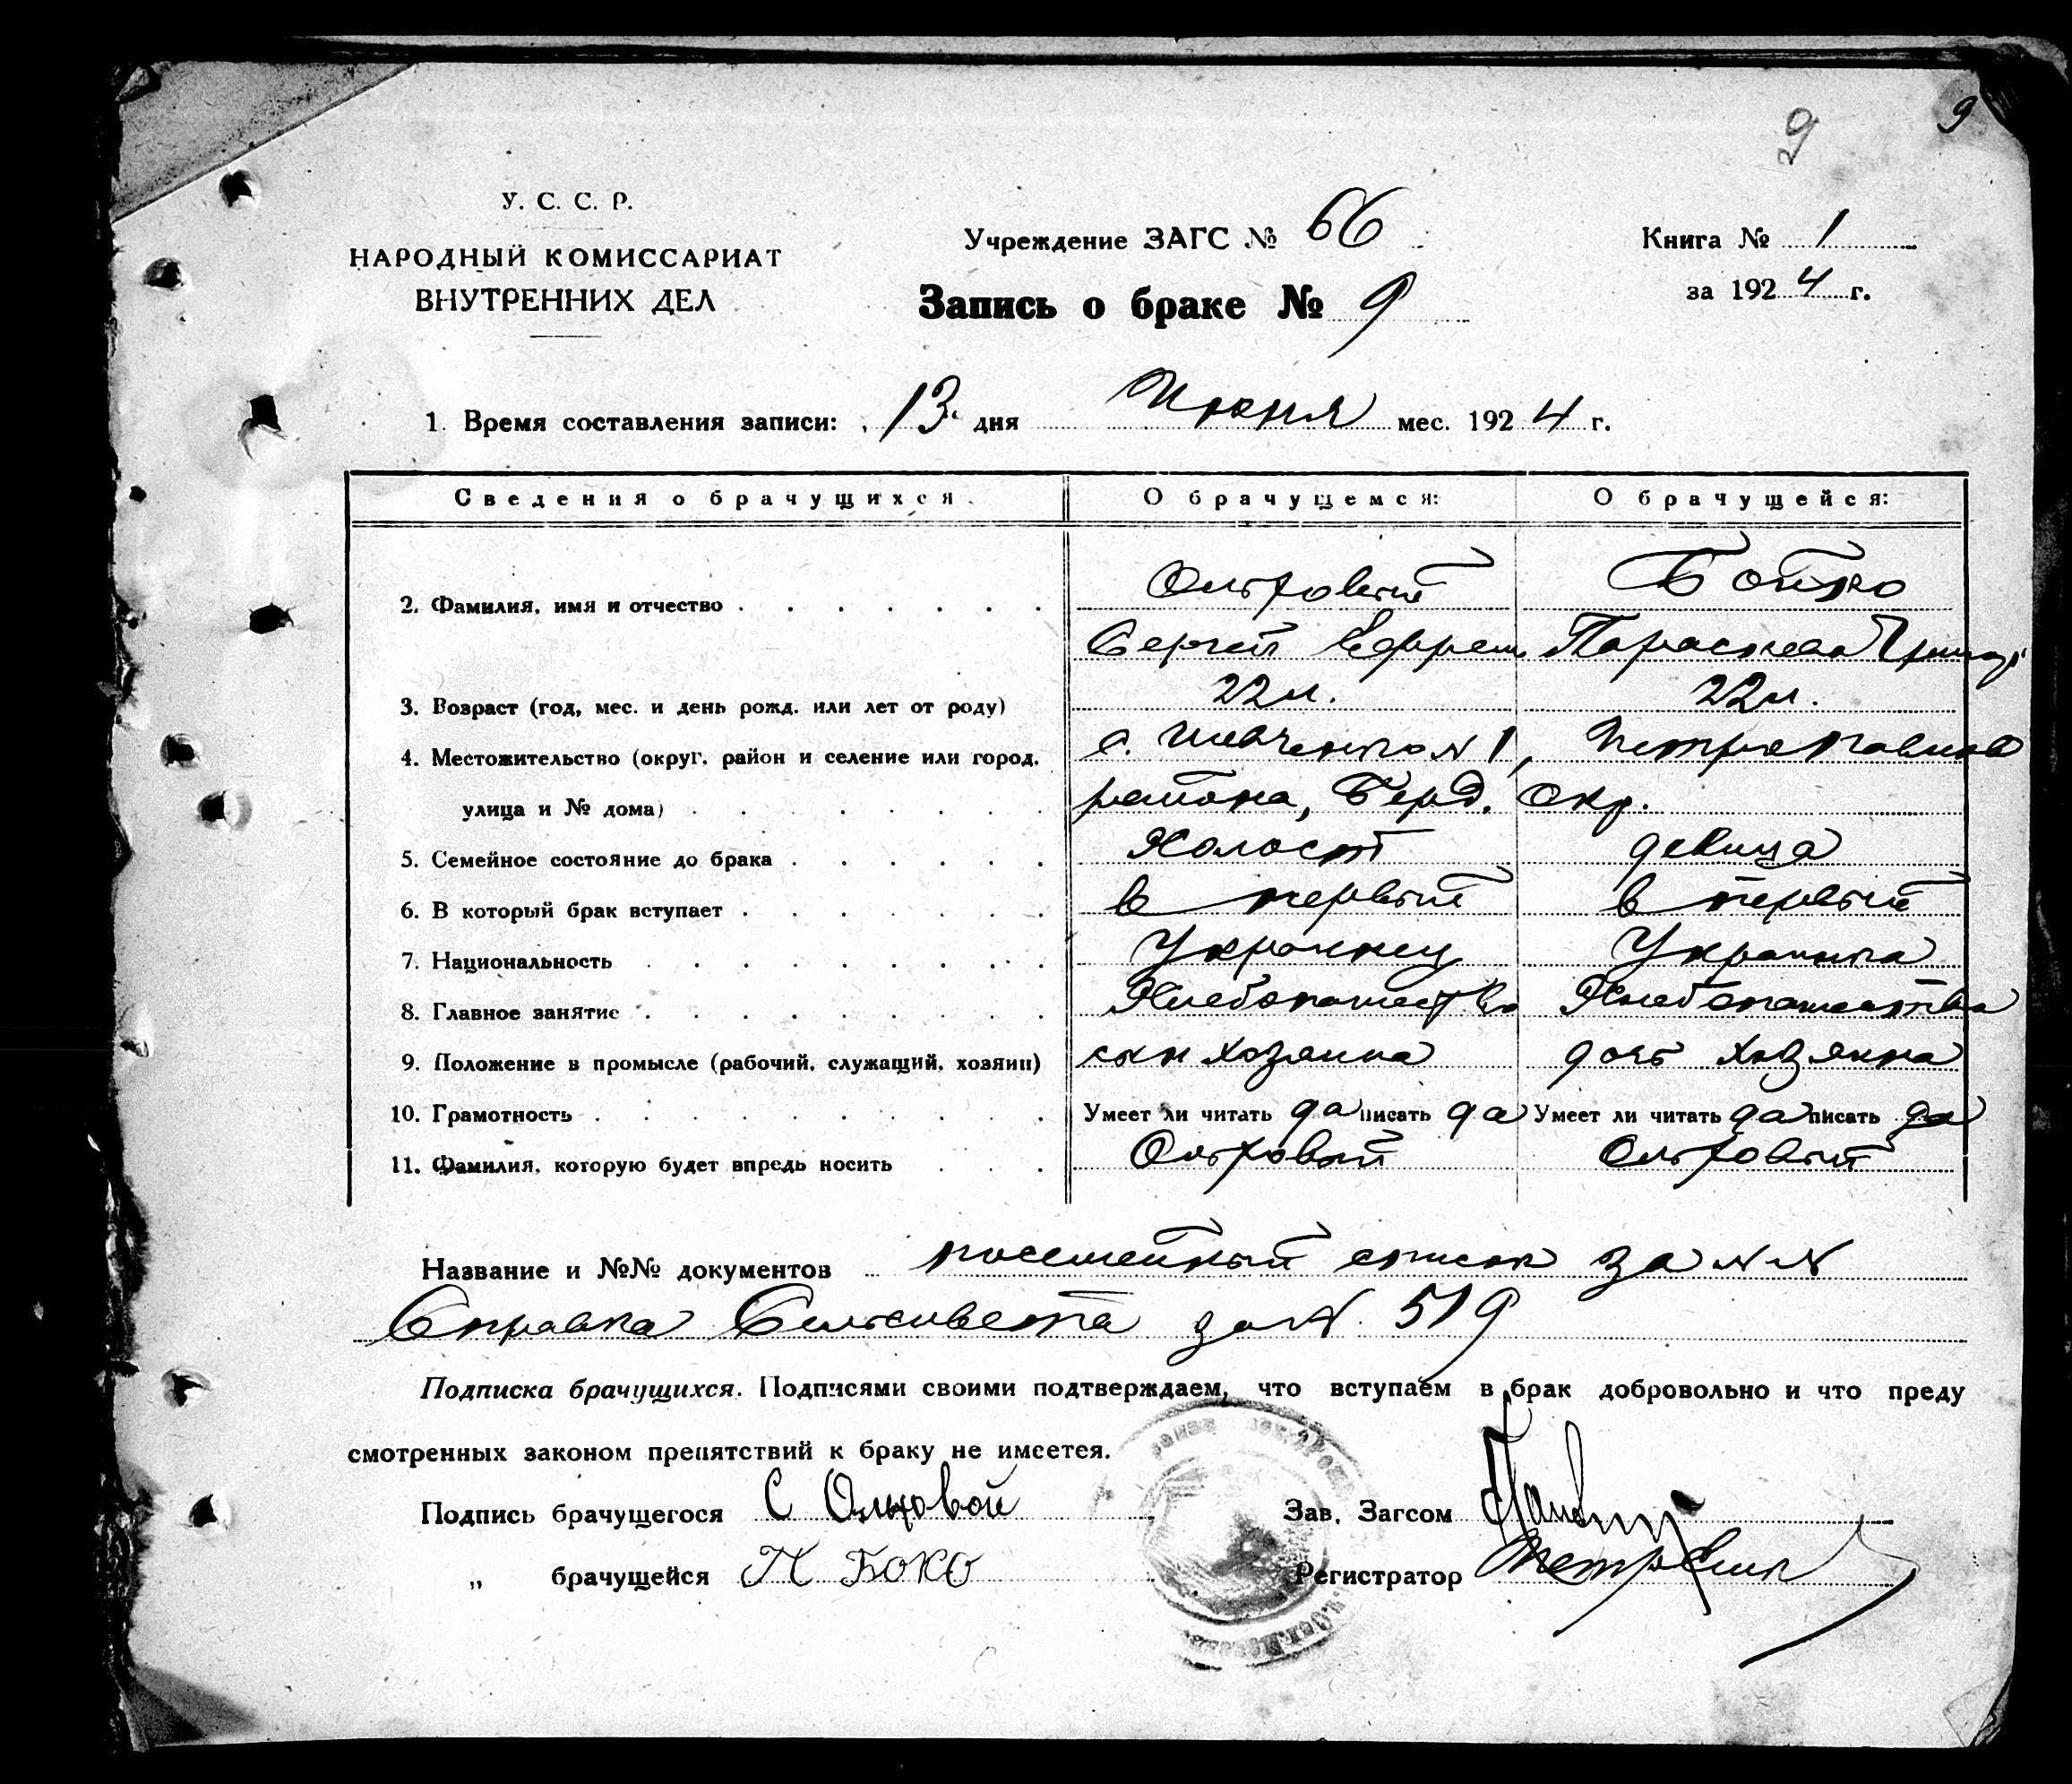 9 9
У. С. С. Р.
НАРОДНЫЙ КОМИССАРИАТ
ВНУТРЕННИХ ДЕЛ
Учреждение ЗАГС № 66
Книга № 1
Запись о браке № 9
за 1924 г.
1. Время составления записи: 13 дня Июня мес. 1924 г.
Сведения о брачущихся О брачущемся: О брачущейся:
Ольховый Бойко
2. Фамилия, имя и отчество
Сергей Ефрем Параскева Григор
3. Возраст (год, мес. и день рожд. или лет от роду) 22 л. 22 л.
4. Местожительство (округ, район и селение или город, с. Шевченко № 1, Петропавлов
улица и № дома) района, Берд. Окр.
5. Семейное состояние до брака Холост девица
6. В который брак вступает в первый в первый
7. Национальность Украинец Украинка
8. Главное занятие Хлебопашество Хлебопашество
9. Положение в промысле (рабочий, служащий, хозяин) сын хозяина дочь хозяина
10. Грамотность Умеет ли читать да писать да Умеет ли читать да писать да
11. Фамилия, которую будет впредь носить Ольховый Ольховый
Название и №№ документов посемейный список за №№
Справка Сельсовета за №. 519
Подписка брачущихся. Подписями своими подтверждаем, что вступаем в брак добровольно и что преду
смотренных законом препятствий к браку не имеется.
Подпись брачущегося С Ольховой Зав. Загсом
„ брачущейся П БОКО Регистратор